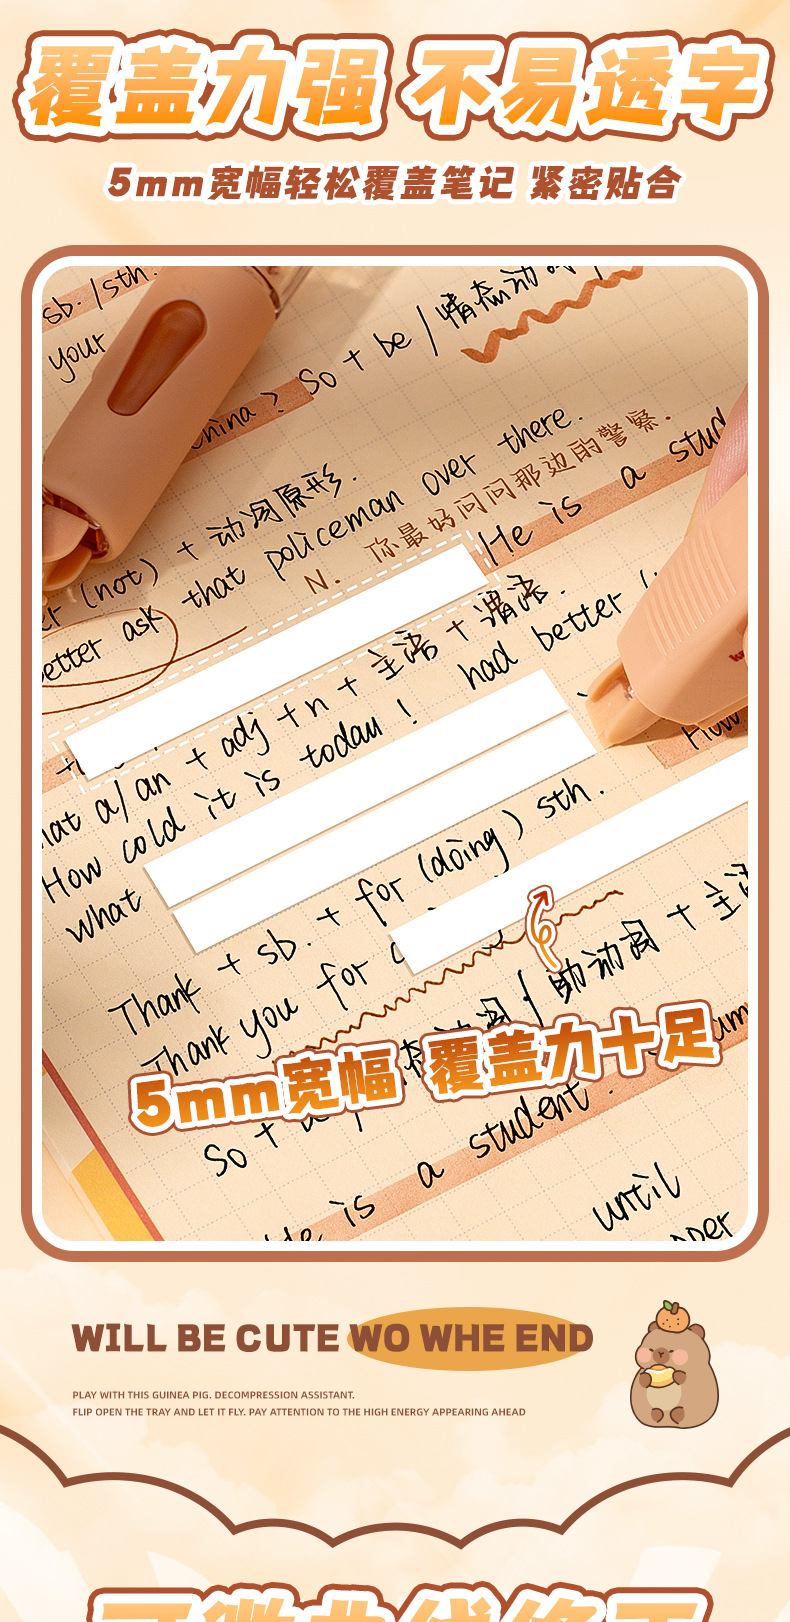 覆盖力强 不易透字
5mm宽幅轻松覆盖笔记 紧密贴合
sb. / sth.
your
China ? So + be / 情态动词 /
(not) + 动词原形.
better ask that policeman over there.
N. 你最好问问那边的警察.
He is a stud
at a/an + adj + n + 主语 + 谓语.
How cold it is today ! had better (
What
How
Thank + sb. + for (doing) sth.
Thank you for
态动词 / 助动词 + 主语
5mm宽幅 覆盖力十足
So +
He is a student.
until
WILL BE CUTE WO WHE END
PLAY WITH THIS GUINEA PIG. DECOMPRESSION ASSISTANT.
FLIP OPEN THE TRAY AND LET IT FLY. PAY ATTENTION TO THE HIGH ENERGY APPEARING AHEAD